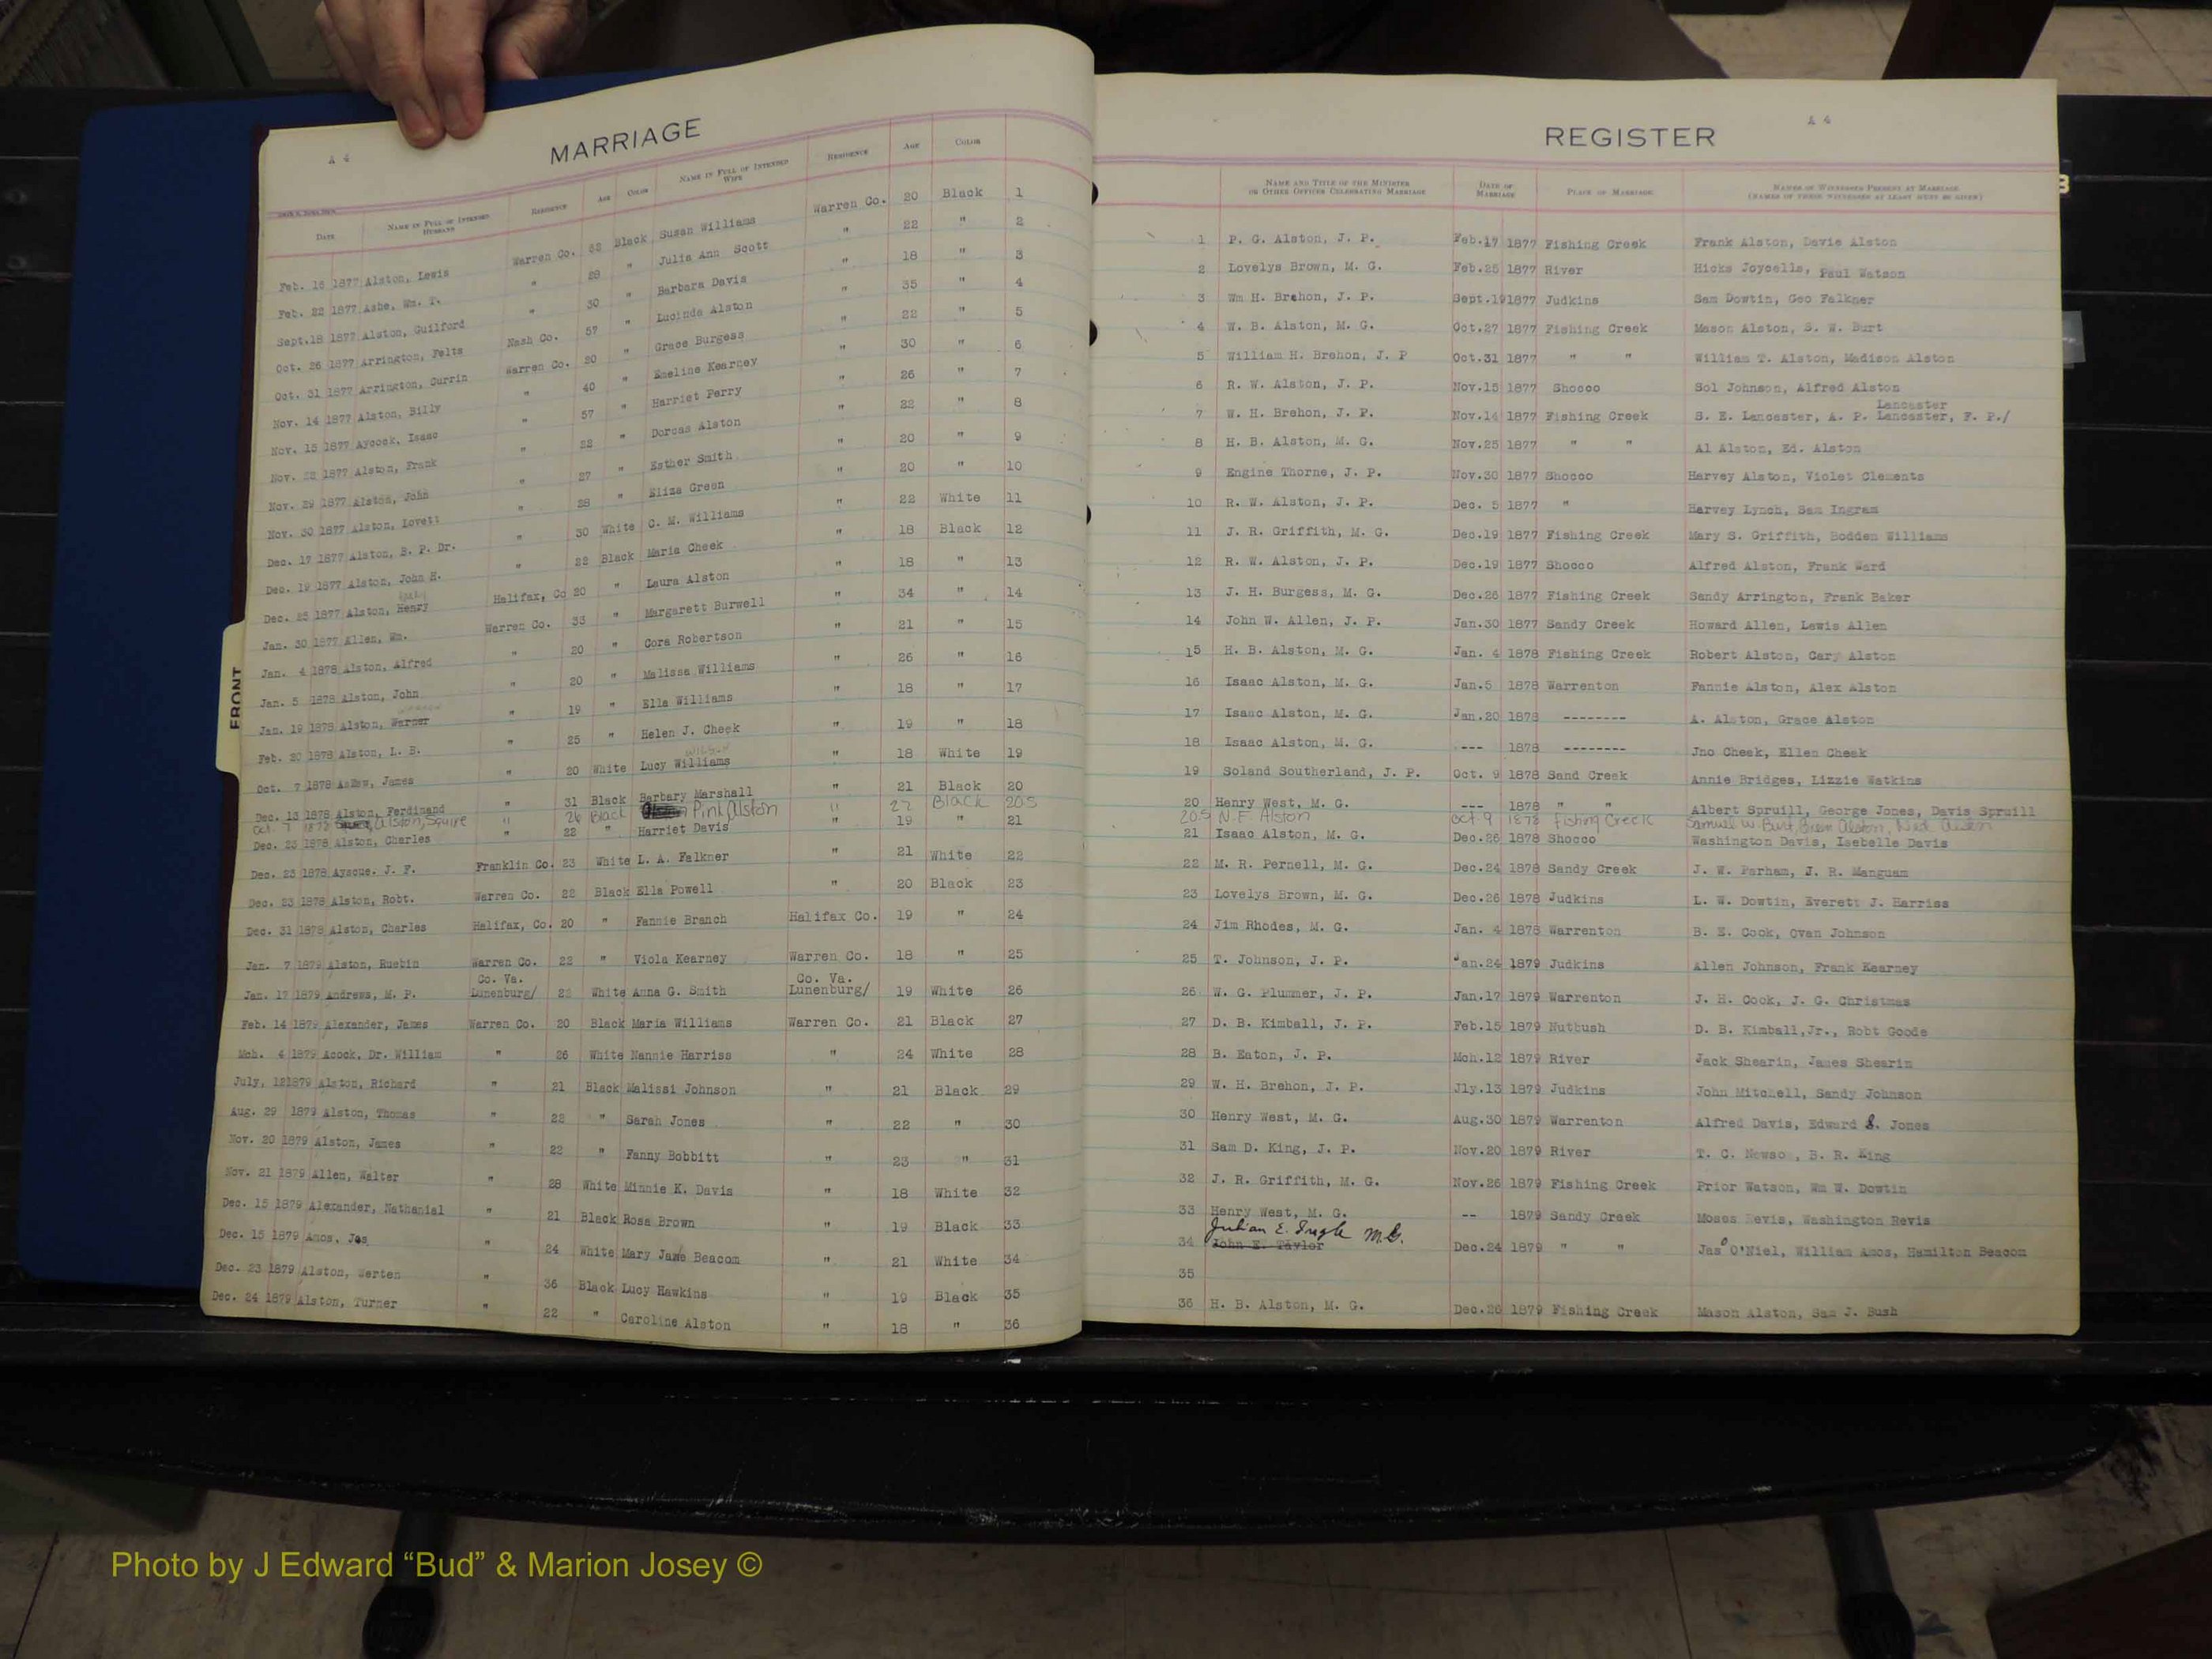 A 4
MARRIAGE
DATE NAME IN FULL OF INTENDED HUSBAND RESIDENCE AGE COLOR NAME IN FULL OF INTENDED WIFE RESIDENCE AGE COLOR
Feb. 16 1877 Alston, Lewis Warren Co. 52 Black Susan Williams Warren Co. 20 Black 1
Feb. 22 1877 Ashe, Wm. T. " 28 " Julia Ann Scott " 22 " 2
Sept.18 1877 Alston, Guilford " 30 " Barbara Davis " 18 " 3
Oct. 26 1877 Arrington, Felts Nash Co. 57 " Lucinda Alston " 35 " 4
Oct. 31 1877 Arrington, Currin Warren Co. 20 " Grace Burgess " 22 " 5
Nov. 14 1877 Alston, Billy " 40 " Emeline Kearney " 30 " 6
Nov. 15 1877 Aycock, Isaac " 57 " Harriet Perry " 26 " 7
Nov. 22 1877 Alston, Frank " 22 " Dorcas Alston " 22 " 8
Nov. 29 1877 Alston, John " 27 " Esther Smith " 20 " 9
Nov. 30 1877 Alston, Lovett " 28 " Eliza Green " 20 " 10
Dec. 17 1877 Alston, B. P. Dr. " 30 White C. M. Williams " 22 White 11
Dec. 19 1877 Alston, John H. " 22 Black Maria Cheek " 18 Black 12
Dec. 25 1877 Alston, Henry Halifax, Co 20 " Laura Alston " 18 " 13
Jan. 30 1877 Allen, Wm. Warren Co. 33 " Margarett Burwell " 34 " 14
Jan. 4 1878 Alston, Alfred " 20 " Cora Robertson " 21 " 15
Jan. 5 1878 Alston, John " 20 " Malissa Williams " 26 " 16
Jan. 19 1878 Alston, Warner " 19 " Ella Williams " 18 " 17
Feb. 20 1878 Alston, L. B. " 25 " Helen J. Cheek " 19 " 18
Wilson
Oct. 7 1878 Askew, James " 20 White Lucy Williams " 18 White 19
Dec. 13 1878 Alston, Ferdinand " 31 Black Barbary Marshall " 21 Black 20
Oct. 7 1878 Alston, Squire " 26 Black Pink Alston " 27 Black 20.5
Dec. 23 1878 Alston, Charles " 22 " Harriet Davis " 19 " 21
Dec. 23 1878 Ayscue. J. F. Franklin Co. 23 White L. A. Falkner " 21 White 22
Dec. 23 1878 Alston, Robt. Warren Co. 22 Black Ella Powell " 20 Black 23
Dec. 31 1878 Alston, Charles Halifax, Co. 20 " Fannie Branch Halifax Co. 19 " 24
Jan. 7 1879 Alston, Ruebin Warren Co. 22 " Viola Kearney Warren Co. 18 " 25
Co. Va. Co. Va.
Jan. 17 1879 Andrews, M. P. Lunenburg/ 22 White Anna G. Smith Lunenburg/ 19 White 26
Feb. 14 1879 Alexander, James Warren Co. 20 Black Maria Williams Warren Co. 21 Black 27
Mch. 4 1879 Acock, Dr. William " 26 White Nannie Harriss " 24 White 28
July, 121879 Alston, Richard " 21 Black Malissi Johnson " 21 Black 29
Aug. 29 1879 Alston, Thomas " 22 " Sarah Jones " 22 " 30
Nov. 20 1879 Alston, James " 22 " Fanny Bobbitt " 23 " 31
Nov. 21 1879 Allen, Walter " 28 White Minnie K. Davis " 18 White 32
Dec. 15 1879 Alexander, Nathanial " 21 Black Rosa Brown " 19 Black 33
Dec. 15 1879 Amos, Jas " 24 White Mary Jane Beacom " 21 White 34
Dec. 23 1879 Alston, Werten " 36 Black Lucy Hawkins " 19 Black 35
Dec. 24 1879 Alston, Turner " 22 " Caroline Alston " 18 " 36
FRONT
A 4
REGISTER
NAME AND TITLE OF THE MINISTER OR OTHER OFFICER CELEBRATING MARRIAGE DATE OF MARRIAGE PLACE OF MARRIAGE NAMES OF WITNESSES PRESENT AT MARRIAGE (NAMES OF THREE WITNESSES AT LEAST MUST BE GIVEN)
1 P. G. Alston, J. P. Feb.17 1877 Fishing Creek Frank Alston, Davie Alston
2 Lovelys Brown, M. G. Feb.25 1877 River Hicks Joycells, Paul Watson
3 Wm H. Brehon, J. P. Sept.191877 Judkins Sam Dowtin, Geo Falkner
4 W. B. Alston, M. G. Oct.27 1877 Fishing Creek Mason Alston, S. W. Burt
5 William H. Brehon, J. P Oct.31 1877 " " William T. Alston, Madison Alston
6 R. W. Alston, J. P. Nov.15 1877 Shocco Sol Johnson, Alfred Alston
Lancaster
7 W. H. Brehon, J. P. Nov.14 1877 Fishing Creek S. E. Lancaster, A. P. Lancaster, F. P./
8 H. B. Alston, M. G. Nov.25 1877 " " Al Alston, Ed. Alston
9 Engine Thorne, J. P. Nov.30 1877 Shocco Harvey Alston, Violet Clements
10 R. W. Alston, J. P. Dec. 5 1877 " Harvey Lynch, Sam Ingram
11 J. R. Griffith, M. G. Dec.19 1877 Fishing Creek Mary S. Griffith, Bodden Williams
12 R. W. Alston, J. P. Dec.19 1877 Shocco Alfred Alston, Frank Ward
13 J. H. Burgess, M. G. Dec.26 1877 Fishing Creek Sandy Arrington, Frank Baker
14 John W. Allen, J. P. Jan.30 1877 Sandy Creek Howard Allen, Lewis Allen
15 H. B. Alston, M. G. Jan. 4 1878 Fishing Creek Robert Alston, Cary Alston
16 Isaac Alston, M. G. Jan.5 1878 Warrenton Fannie Alston, Alex Alston
17 Isaac Alston, M. G. Jan.20 1878 -------- A. Alston, Grace Alston
18 Isaac Alston, M. G. --- 1878 -------- Jno Cheek, Ellen Cheek
19 Soland Southerland, J. P. Oct. 9 1878 Sand Creek Annie Bridges, Lizzie Watkins
20 Henry West, M. G. --- 1878 " " Albert Spruill, George Jones, Davis Spruill
20.5 N.F. Alston Oct-9 1878 Fishing Creek Samuel W. Burt, Alston, Alston
21 Isaac Alston, M. G. Dec.26 1878 Shocco Washington Davis, Isebelle Davis
22 M. R. Pernell, M. G. Dec.24 1878 Sandy Creek J. W. Parham, J. R. Manguam
23 Lovelys Brown, M. G. Dec.26 1878 Judkins L. W. Dowtin, Everett J. Harriss
24 Jim Rhodes, M. G. Jan. 4 1878 Warrenton B. E. Cook, Ovan Johnson
25 T. Johnson, J. P. Jan.24 1879 Judkins Allen Johnson, Frank Kearney
26 W. G. Plummer, J. P. Jan.17 1879 Warrenton J. H. Cook, J. G. Christmas
27 D. B. Kimball, J. P. Feb.15 1879 Nutbush D. B. Kimball,Jr., Robt Goode
28 B. Eaton, J. P. Mch.12 1879 River Jack Shearin, James Shearin
29 W. H. Brehon, J. P. Jly.13 1879 Judkins John Mitchell, Sandy Johnson
30 Henry West, M. G. Aug.30 1879 Warrenton Alfred Davis, Edward & Jones
31 Sam D. King, J. P. Nov.20 1879 River T. C. Newso , B. R. King
32 J. R. Griffith, M. G. Nov.26 1879 Fishing Creek Prior Watson, Wm W. Dowtin
33 Henry West, M. G. -- 1879 Sandy Creek Moses Revis, Washington Revis
Julian E. M.G.
34 John E. Taylor Dec.24 1879 " " Jas O'Niel, William Amos, Hamilton Beacom
35
36 H. B. Alston, M. G. Dec.26 1879 Fishing Creek Mason Alston, Sam J. Bush
Photo by J Edward “Bud” & Marion Josey ©